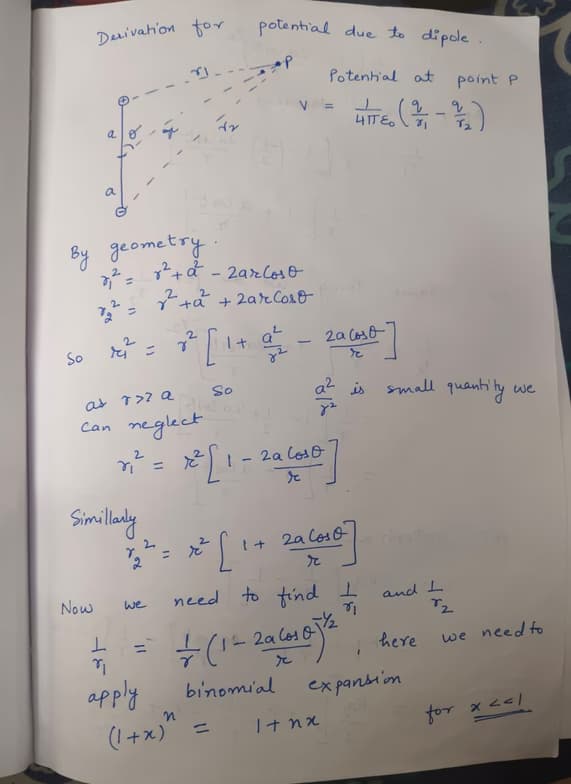 Derivation for potential due to dipole.
r1
P
Potential at point P
V = 1/4πε₀ (q/r₁ - q/r₂)
+
a
θ
r
r2
a
-
By geometry.
r₁² = r² + a² - 2ar Cosθ
r₂² = r² + a² + 2ar Cosθ
So r₁² = r² [1 + a²/r² - 2a Cosθ/r]
as r>>a so a²/r² is small quantity we
can neglect
r₁² = r² [1 - 2a Cosθ/r]
Simillarly
r₂² = r² [1 + 2a Cosθ/r]
Now we need to find 1/r₁ and 1/r₂
1/r₁ = 1/r (1 - 2a Cosθ/r)^-1/2, here we need to
apply binomial expansion
(1+x)ⁿ = 1+nx for x<<1